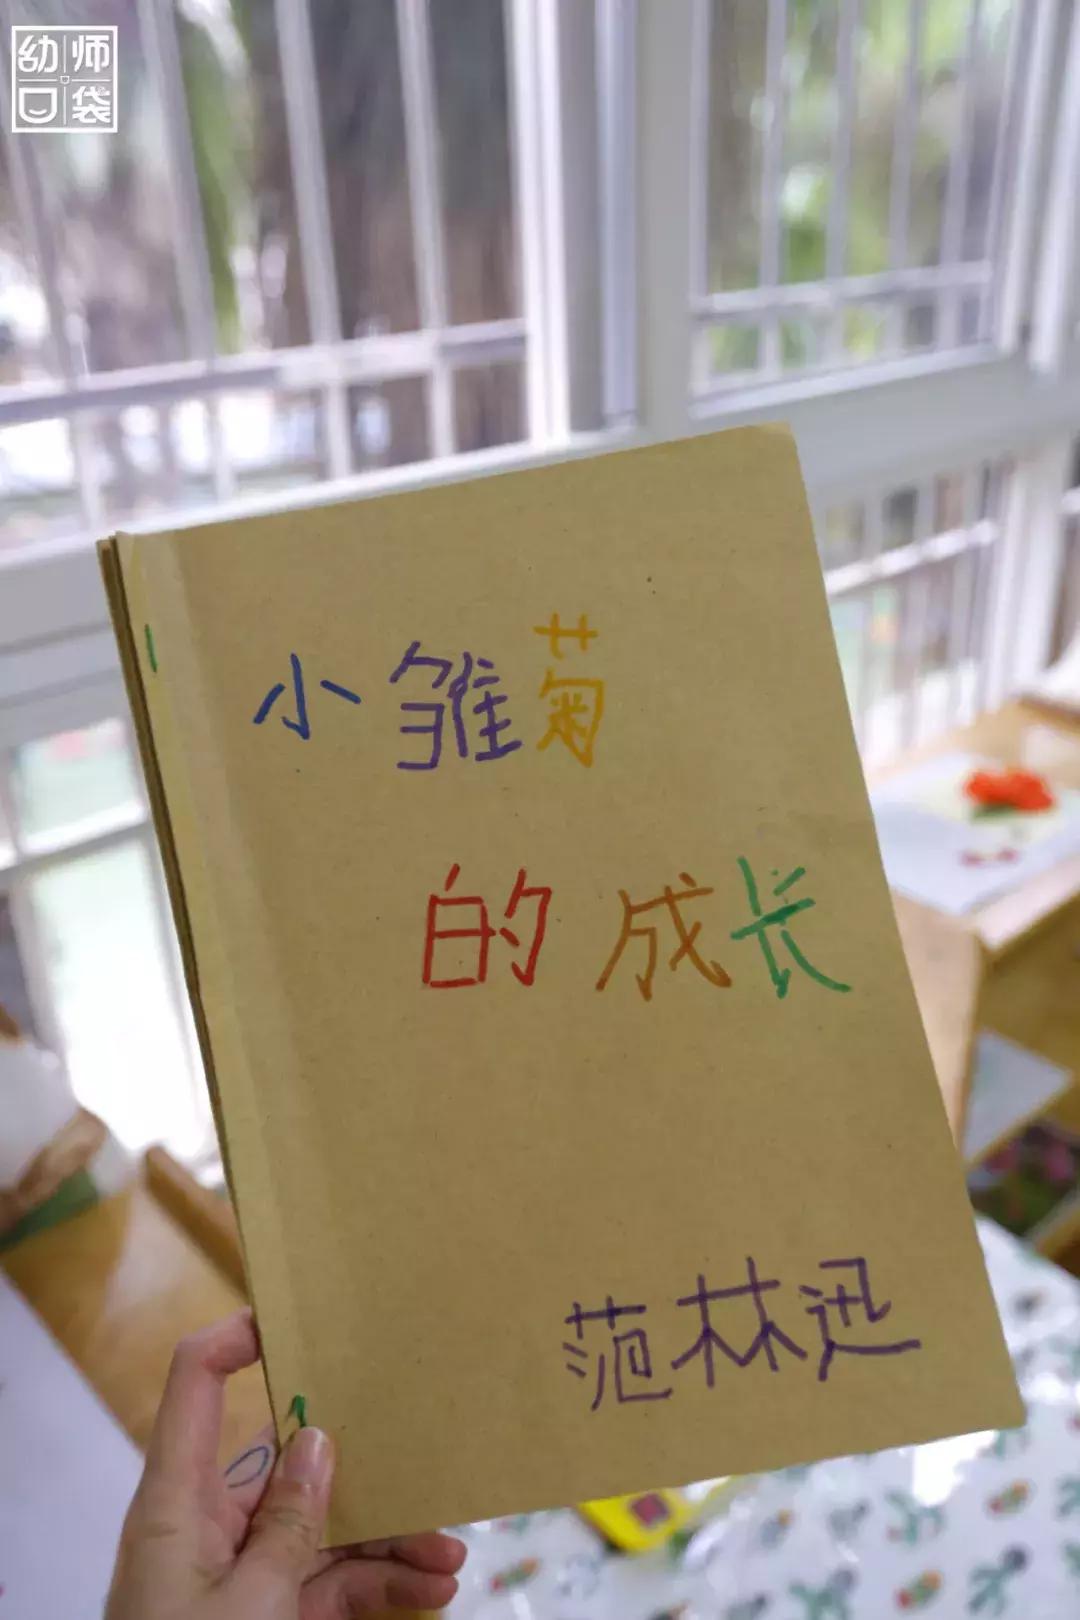 幼师
口袋
小雏菊
的成长
范林迅